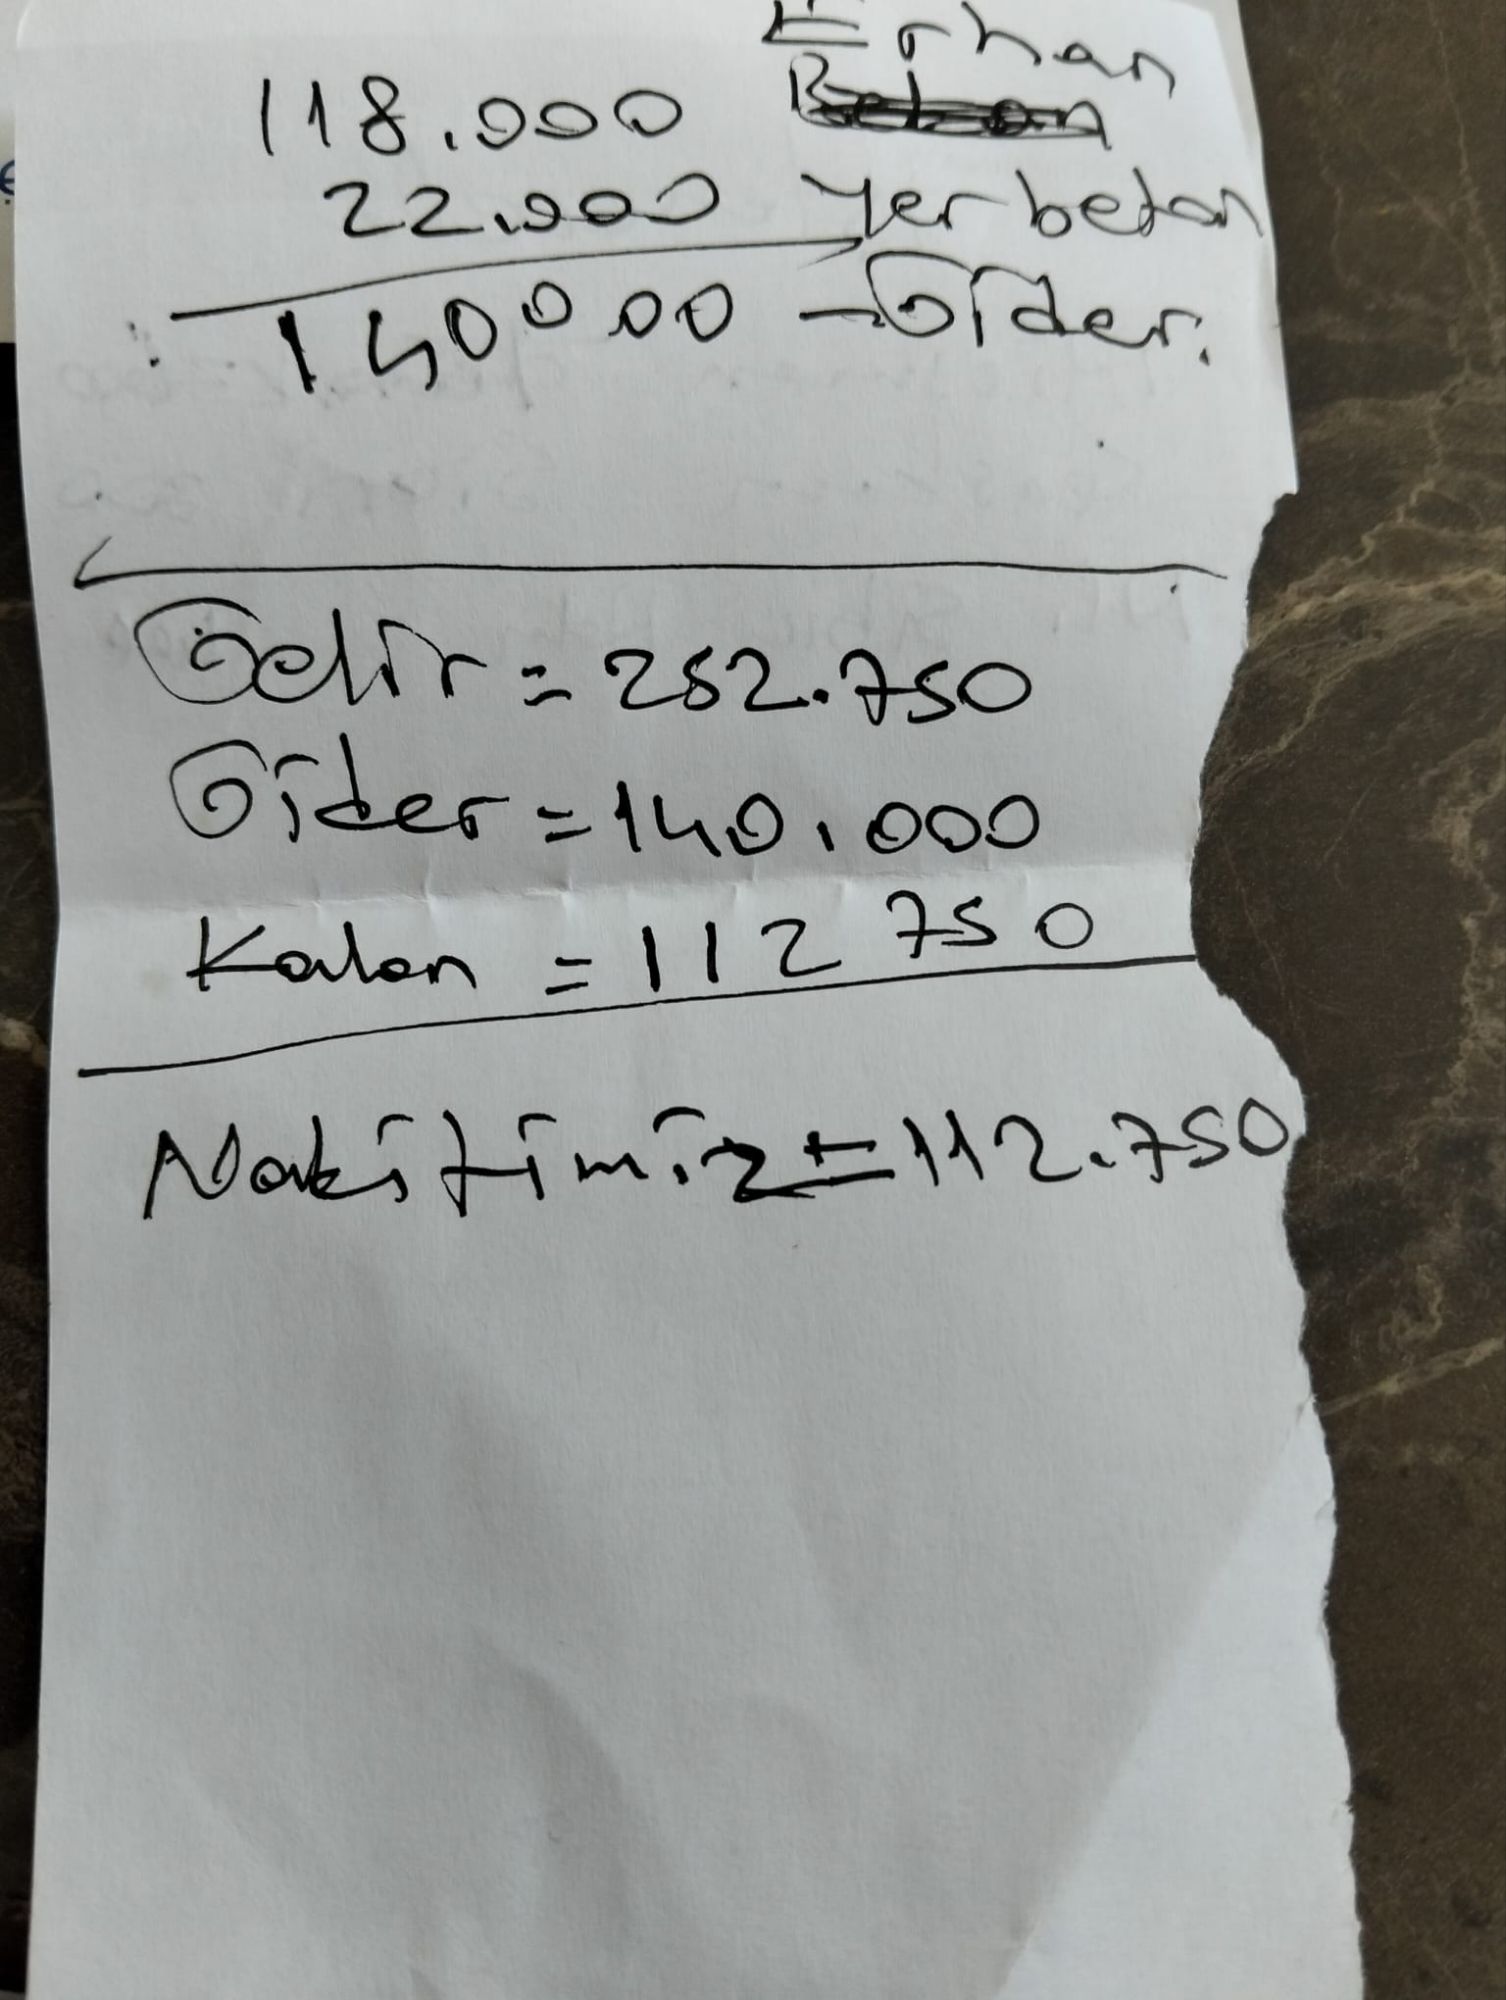 Erhan
118.000 Beton
22.000 Yer beton
140000 - Gider.
Gelir = 252.750
Gider = 140.000
Kalan = 112 750
Nakitimiz = 112.750